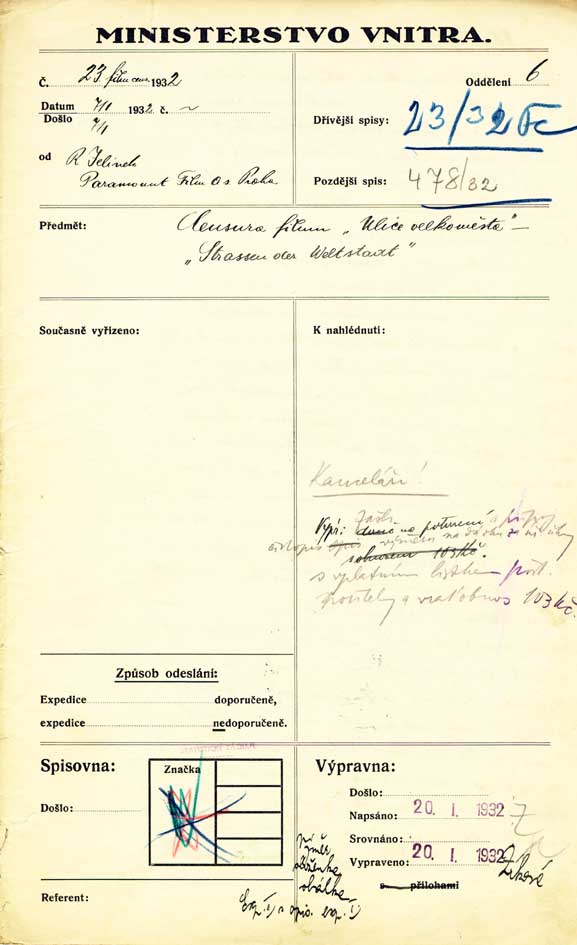 MINISTERSTVO VNITRA.
Č. 23 film cens. 1932
Oddělení 6
Datum 7/1 1932 č. ~
Došlo 7/1
Dřívější spisy: 23/32 Fc
od R Jelinek
Paramount Film Os Praha
Pozdější spis: 478/32
Předmět: Censura filmu „Ulice velkoměsta" –
„Strassen der Weltstadt"
Současně vyřízeno:
K nahlédnutí:
Kanceláři!
Vypr:
potvrzení
103 Kč.
s vyplatním lístkem pošt.
a 103 Kč.
Způsob odeslání:
Expedice doporučeně,
expedice nedoporučeně.
Spisovna:
Značka
Došlo:
Výpravna:
Došlo:
Napsáno: 20. I. 1932
Srovnáno:
Vypraveno: 20. I. 1932
s přílohami
obálka
Referent: